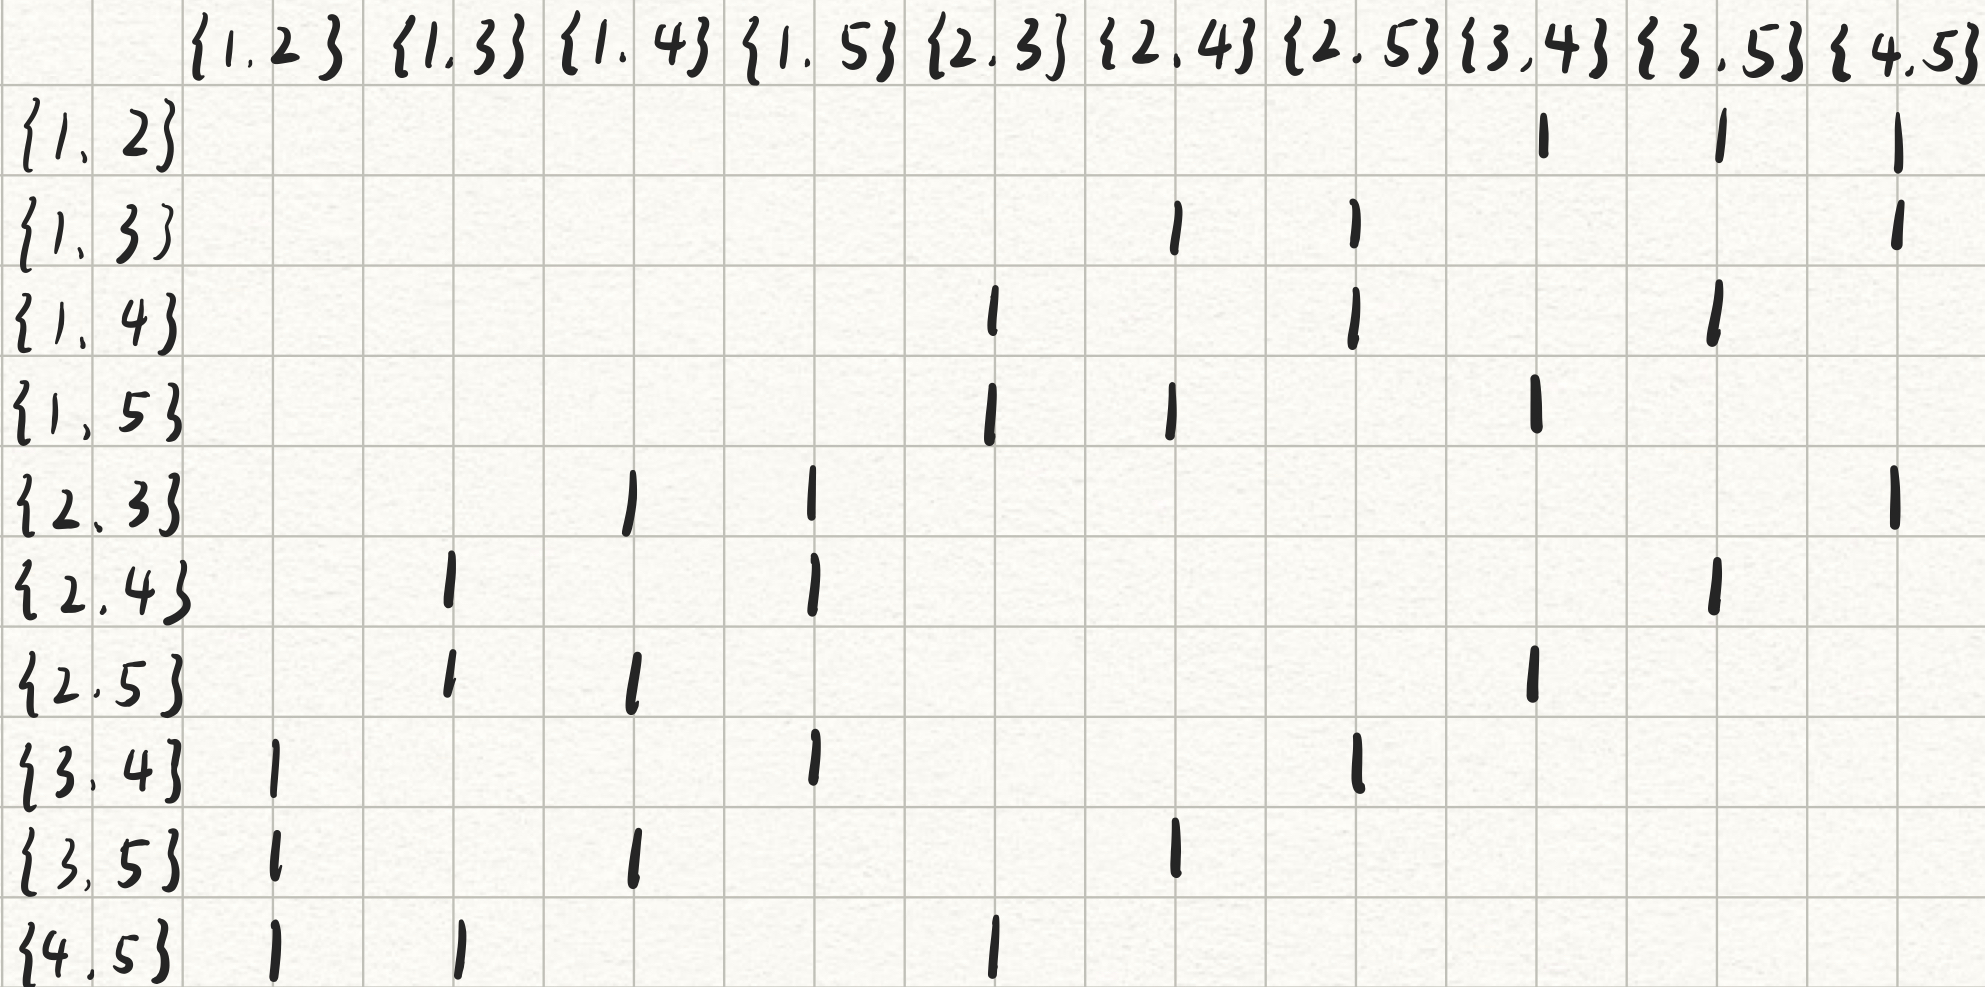 {1.2} {1.3} {1.4} {1.5} {2.3} {2.4} {2.5} {3,4} {3.5} {4,5}
{1,2} 1 1 1
{1,3} 1 1 1
{1,4} 1 1 1
{1,5} 1 1 1
{2.3} 1 1 1
{2.4} 1 1 1
{2.5} 1 1 1
{3.4} 1 1 1
{3,5} 1 1 1
{4.5} 1 1 1